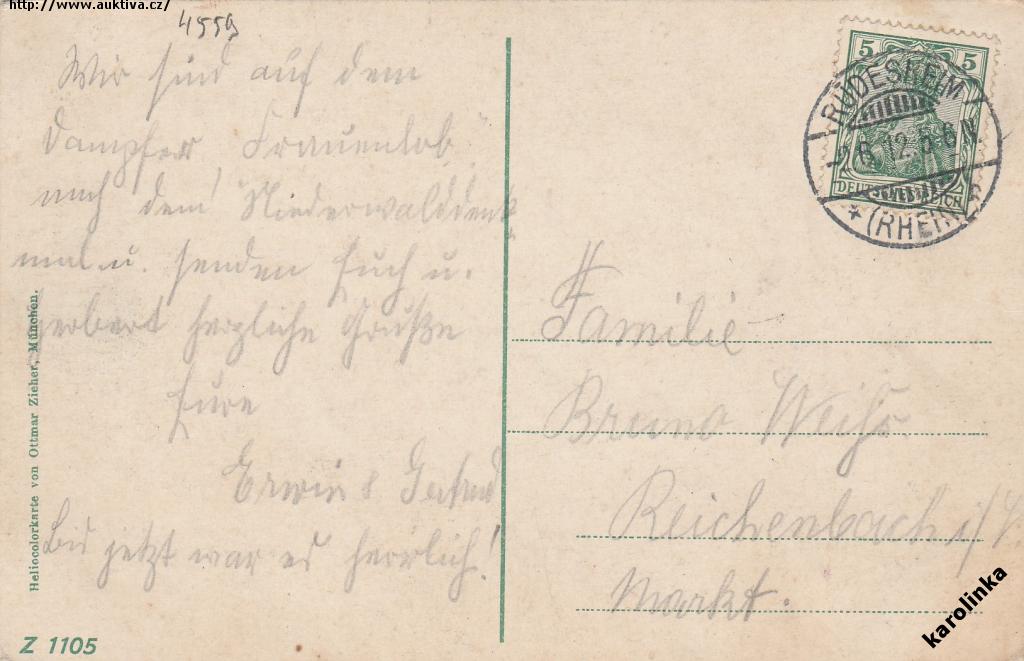 http://www.auktiva.cz/
4559
Wir sind auf dem
Dampfer „Frauenlob“
nach dem Niederwalddenk-
mal u. senden Euch u.
herzliche Grüße
Eure
Erwin &
Bis jetzt war es herrlich!
Heliocolorkarte von Ottmar Zieher, München.
Z 1105
5 5
DEUTSCHES REICH
RÜDESHEIM
6.12.5-6N
* (RHEIN)
Familie
Bruno Weihs.
Reichenbach i/V.
Markt.
karolinka